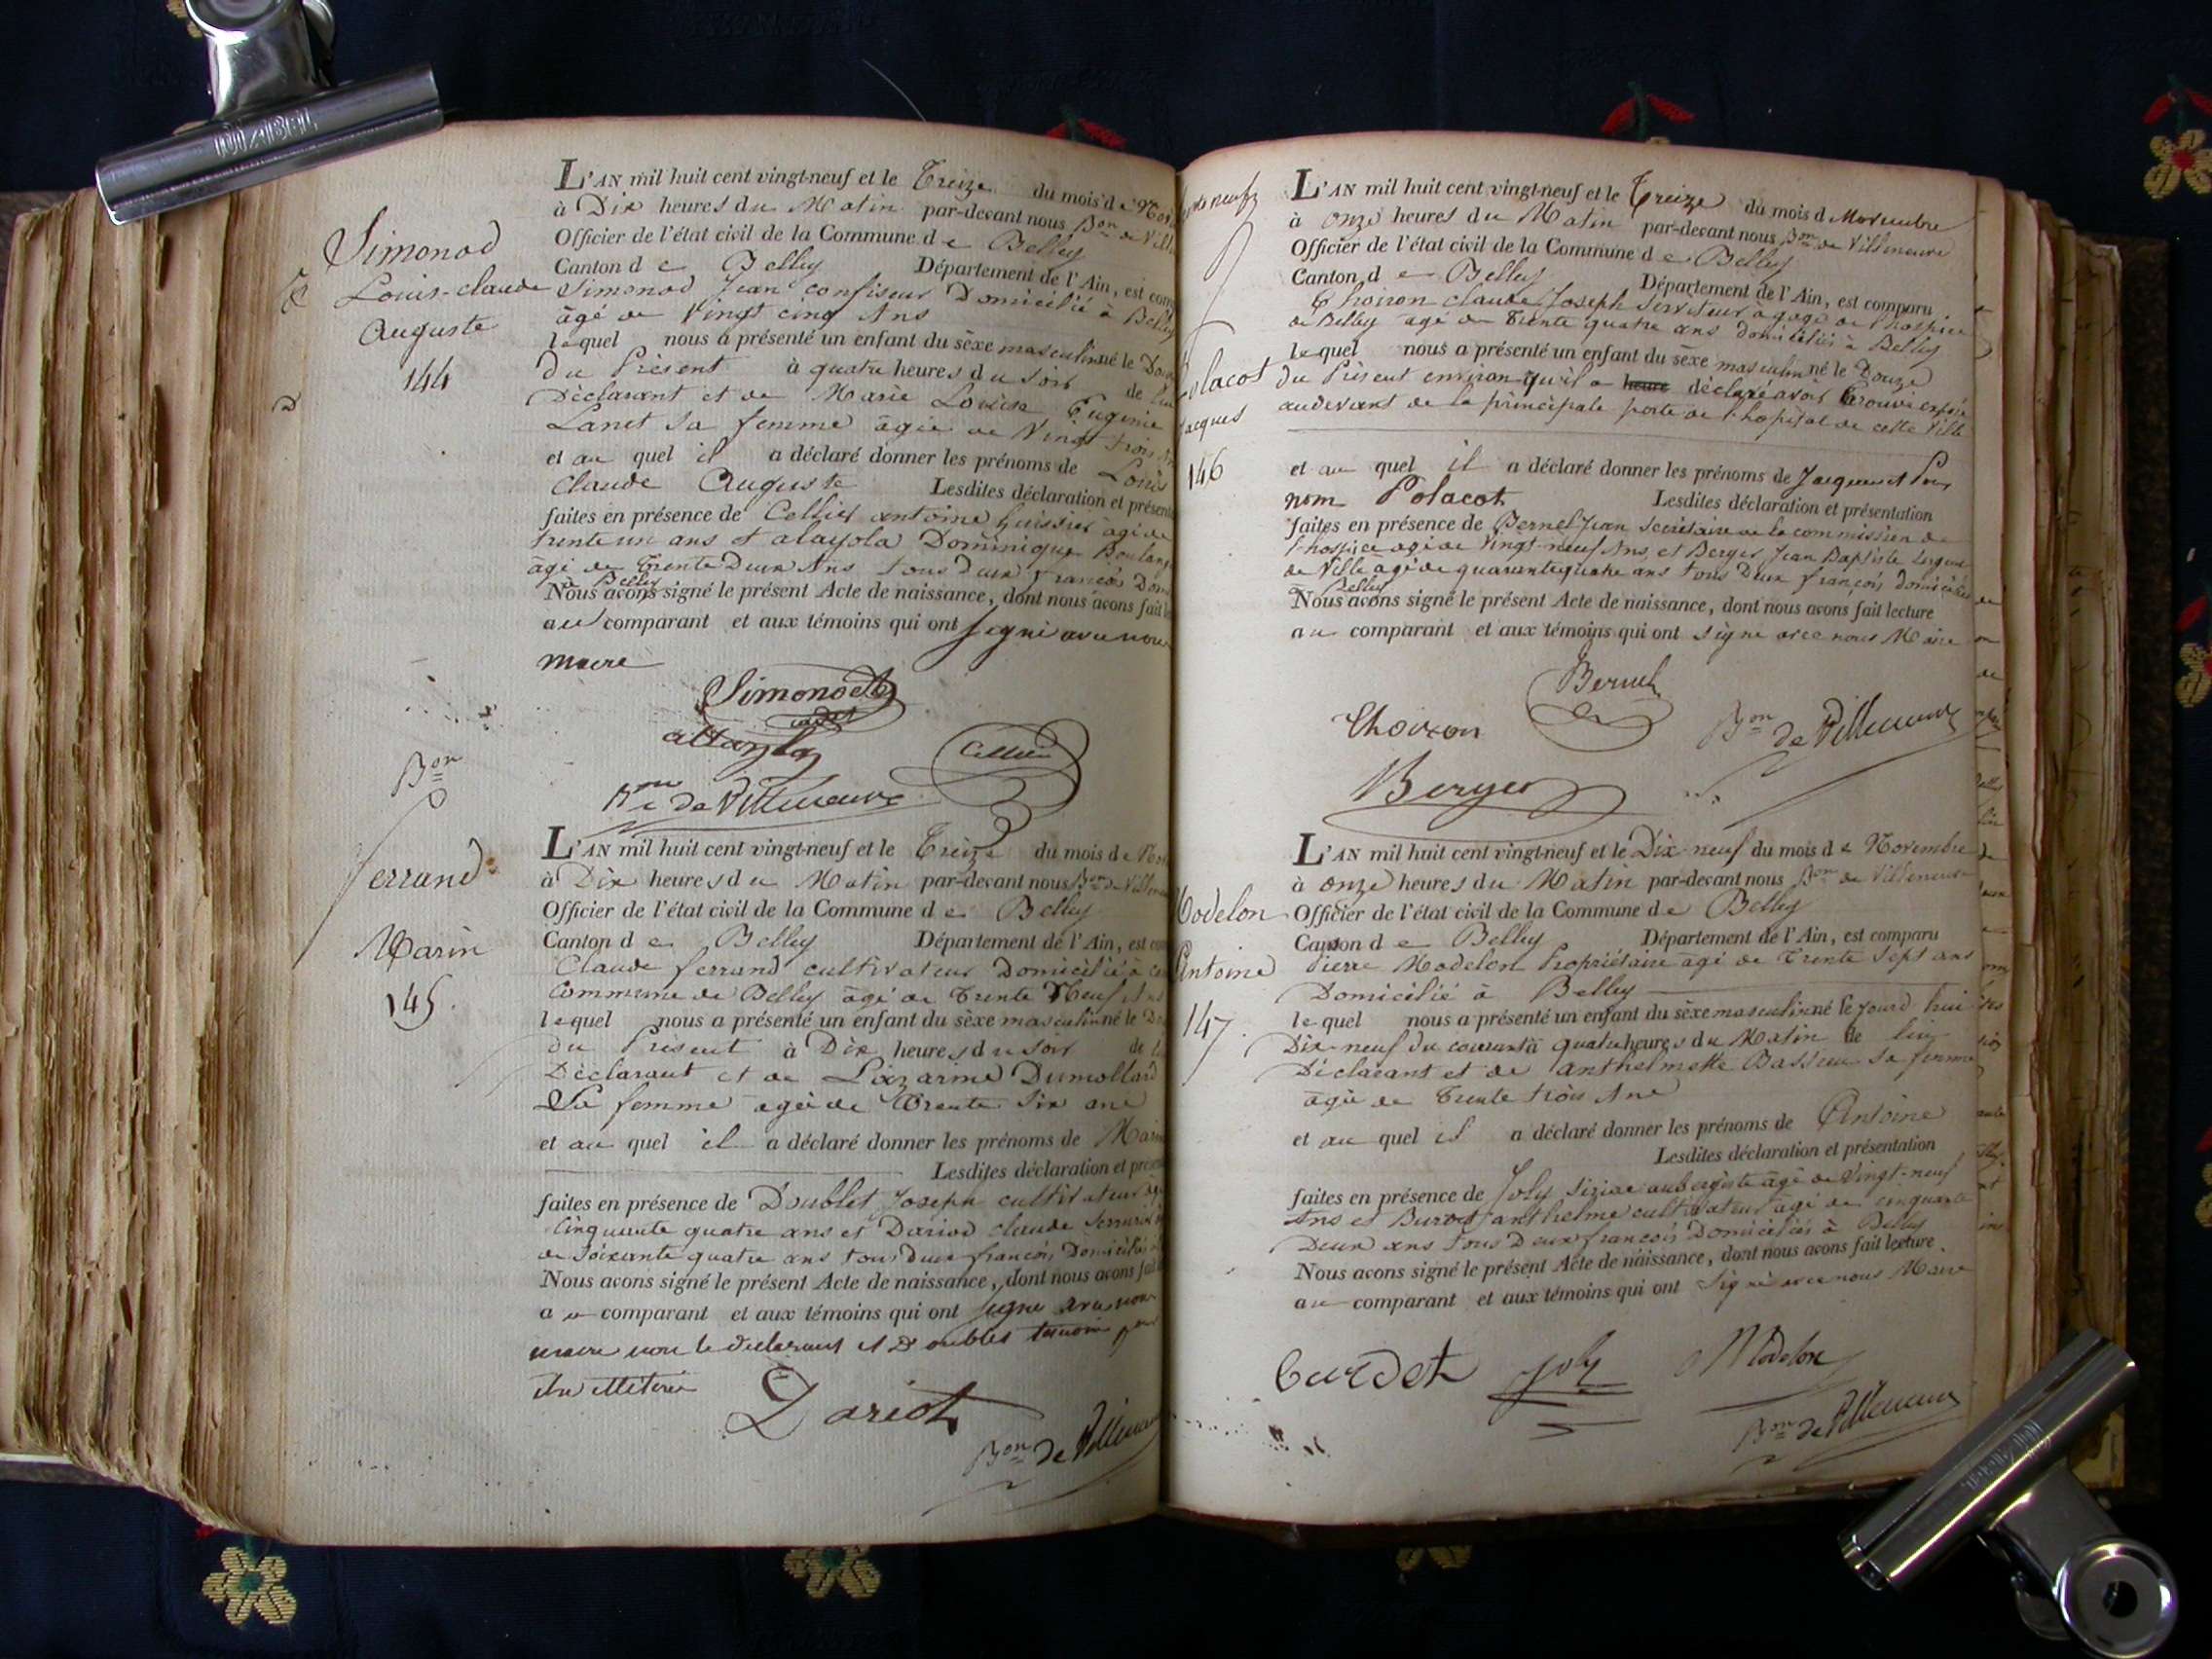 Simonod
Louis-claude
Auguste
144
L'AN mil huit cent vingt-neuf et le Treize du mois de Nov
à Dix heures du Matin par-devant nous Bon de Vill
Officier de l'état civil de la Commune de Belley
Canton de Belley Département de l'Ain, est com
Simonod Jean confiseur Domicilié à Belley
âgé de Vingt cinq Ans
lequel nous a présenté un enfant du sèxe masculin né le Dou
du Présent à quatre heures du soir de lui
Déclarant et de Marie Louise Eugenie
Lanet sa femme âgée de Vingt trois
et au quel il a déclaré donner les prénoms de Louis
Claude Auguste Lesdites déclaration et présent
faites en présence de Cellier antoine huissier agé de
trente un ans et alayola Dominique Boulang
âgé de Trente Deux Ans tous deux françois Dom
à Belley
Nous avons signé le présent Acte de naissance, dont nous avons fait
au comparant et aux témoins qui ont signé avec nous
maire
Simonod
cadet
Cellier
Bon de Villeneuve
Bon
ferrand
Marin
145.
L'AN mil huit cent vingt-neuf et le Treize du mois de Nov
à Dix heures du Matin par-devant nous Bon de Villen
Officier de l'état civil de la Commune de Belley
Canton de Belley Département de l'Ain, est com
Claude ferrand cultivateur Domicilié à
Commune de Belley âgé de Trente Neuf Ans
lequel nous a présenté un enfant du sèxe masculin né le
du Présent à Dix heures du soir de
Déclarant et de Lazarine Dumollard
Sa femme agée de Trente Six ans
et au quel il a déclaré donner les prénoms de Marin
Lesdites déclaration et présen
faites en présence de Doublet Joseph cultivateur
Cinquante quatre ans et Dariod claude Serrurier
de Soixante quatre ans tous deux françois Domiciliés
Nous avons signé le présent Acte de naissance, dont nous avons fait
au comparant et aux témoins qui ont signé avec nous
maire non le déclarant et Doublet temoin pour
être illiteré
Dariot
Bon de Villeneuve
Polacot
Jacques
146
L'AN mil huit cent vingt-neuf et le Treize du mois d Novembre
à onze heures du Matin par-devant nous Bon de Villeneuve
Officier de l'état civil de la Commune de Belley
Canton de Belley Département de l'Ain, est comparu
Thoiron claude Joseph Serviteur à gage de l'hospice
de Belley agé de Trente quatre ans domicilié à Belley
lequel nous a présenté un enfant du sèxe masculin né le Douze
du Présent environ qu'il a heure déclaré avoir trouvé exposé
audevant de la principale porte de l'hopital de cette Ville
et au quel il a déclaré donner les prénoms de Jacques et Pour
nom Polacot Lesdites déclaration et présentation
faites en présence de Bernel Jean Secrétaire de la commission de
l'hospice agé de Vingt-neuf Ans, et Berger Jean Baptiste Sergent
de Ville agé de quarante quatre ans tous Deux françois domiciliés
à Belley
Nous avons signé le présent Acte de naissance, dont nous avons fait lecture
au comparant et aux témoins qui ont signé avec nous Maire
Bernel
Thoiron
Bon de Villeneuve
Berger
Modelon
Antoine
147.
L'AN mil huit cent vingt-neuf et le Dix neuf du mois de Novembre
à onze heures du Matin par-devant nous Bon de Villeneuve
Officier de l'état civil de la Commune de Belley
Canton de Belley Département de l'Ain, est comparu
Pierre Modelon Propriétaire agé de Trente Sept ans
Domicilié à Belley
lequel nous a présenté un enfant du sèxe masculin né le jourd'hui
Dix-neuf du courant à quatre heures du Matin de lui
Déclarant et de anthelmette Bassieu sa femme
âgée de Trente trois Ans
et au quel il a déclaré donner les prénoms de Antoine
Lesdites déclaration et présentation
faites en présence de Joly aubergiste âgé de Vingt-neuf
Ans et Burdet anthelme cultivateur âgé de cinquante
Deux ans tous Deux françois Domiciliés à Belley
Nous avons signé le présent Acte de naissance, dont nous avons fait lecture
au comparant et aux témoins qui ont signé avec nous Maire
burdet Joly Modelon
Bon de Villeneuve